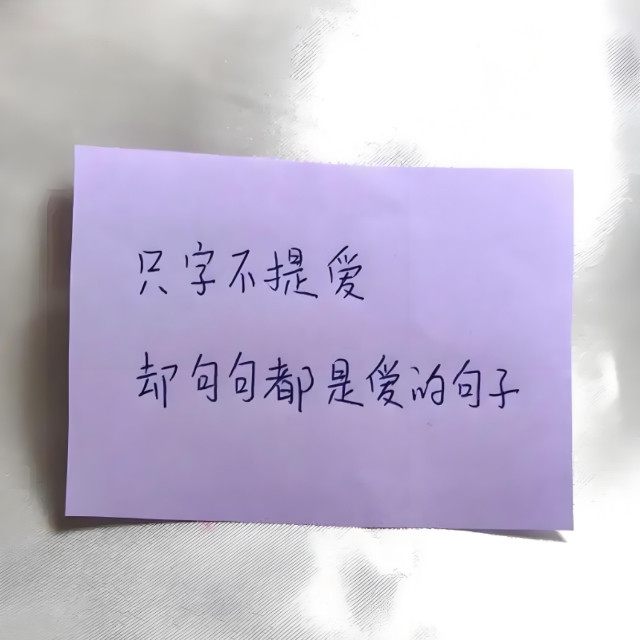 只字不提爱
却句句都是爱的句子